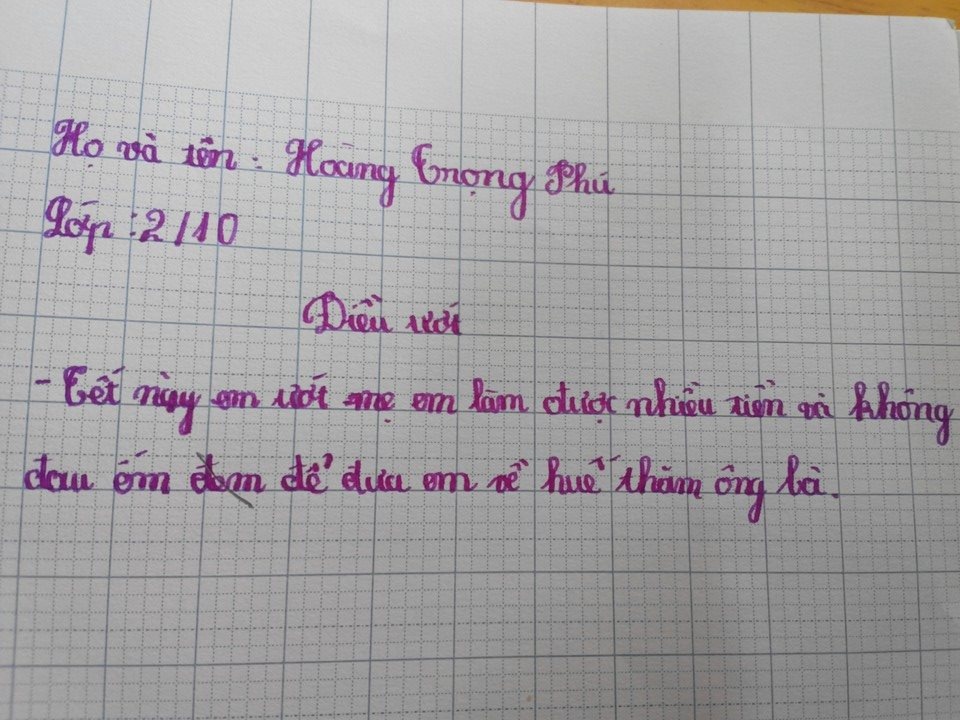 Họ và tên : Hoàng Trọng Phú
Lớp : 2/10
Điều ước
- Tết này em ước mẹ em làm được nhiều tiền và không
đau ốm để đưa em về huế thăm ông bà.